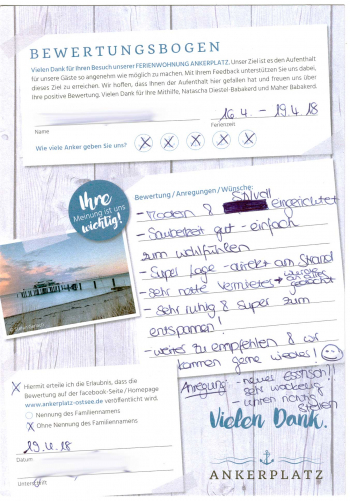 BEWERTUNGSBOGEN
Vielen Dank für Ihren Besuch unserer FERIENWOHNUNG ANKERPLATZ. Unser Ziel ist es den Aufenthalt
für unsere Gäste so angenehm wie möglich zu machen. Mit Ihrem Feedback unterstützen Sie uns dabei,
dieses Ziel zu erreichen. Wir hoffen, dass Ihnen der Aufenthalt hier gefallen hat und freuen uns über
Ihre positive Bewertung. Vielen Dank für Ihre Mithilfe, Natascha Diestel-Babakerd und Maher Babakerd
16.4 - 19.4.18
Name
Ferienzeit
Wie viele Anker geben Sie uns?
X X X X X
Ihre
Meinung ist uns
wichtig!
Bewertung / Anregungen / Wünsche:
- Modern & stilvoll eingerichtet
- Sauberkeit gut - einfach
zum wohlfühlen
- Super Lage - direkt am Strand
- sehr nette Vermieter → wurde an alles gedacht
- Sehr ruhig & super zum
entspannen!
- weiter zu empfehlen & wir
kommen gerne wieder!
Anregung: - neuer Esstisch!!
sehr wackelig
- Uhren nachts
stellen
X Hiermit erteile ich die Erlaubnis, dass die
Bewertung auf der facebook-Seite / Homepage
www.ankerplatz-ostsee.de veröffentlicht wird.
Nennung des Familiennamens
X Ohne Nennung des Familiennamens
19.4.18
Datum
Unterschrift
Vielen Dank.
ANKERPLATZ